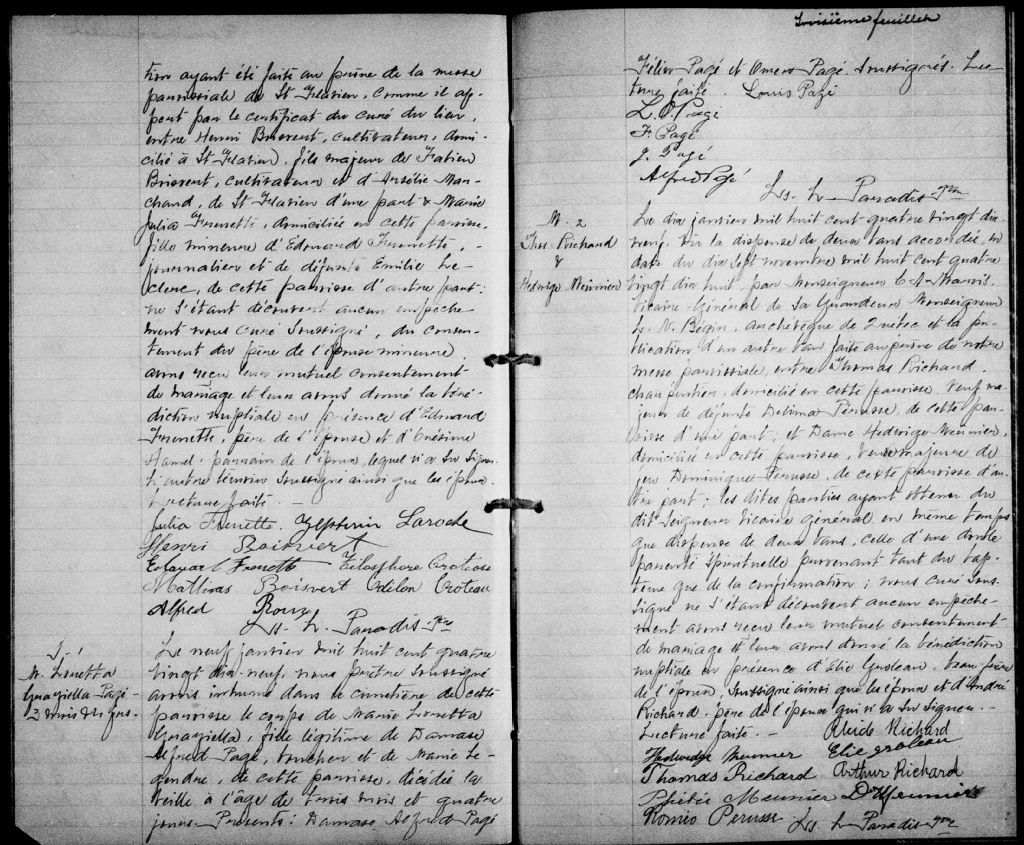 tion ayant été faite au prône de la messe
paroissiale de St Flavien, comme il ap-
pert par le certificat du curé du lieu,
entre Henri Boisvert, cultivateur, domi-
cilié à St Flavien, fils majeur de
Boisvert, cultivateur et d'Aurélie Mar-
chand, de St Flavien d'une part & Marie
Julia Frenette, domiciliée en cette paroisse,
fille mineure d'Edouard Frenette,
journalier et de défunte Emilie Le-
clerc, de cette paroisse d'autre part:
ne s'étant découvert aucun empêche-
ment nous curé soussigné, du consen-
tement du père de l'épouse mineure
avons reçu leur mutuel consentement
de mariage et leur avons donné la béné-
diction nuptiale en présence d'Edouard
Frenette, père de l'épouse et d'Onésime
Hamel, parrain de l'époux, lequel n'a su signer
l'autre témoin soussigné ainsi que les époux.
Lecture faite.
Julia Frenette. Zepherin Laroche
Henri Boisvert
Edouard Frenette Télosphore Croteau
Mathias Boisvert Odilon Croteau
Alfred
Ls. h. Paradis Ptre
S. 1
M. Lonetta
Graziella Pagé
3 mois & 4 jrs.
Le neuf janvier mil huit cent quatre
vingt dix neuf, nous prêtre soussigné
avons inhumé dans le cimetière de cette
paroisse le corps de Marie Lonetta
Graziella, fille légitime de Damase
Alfred Pagé, boucher et de Marie Le-
gendre, de cette paroisse, décédée la
veille à l'âge de trois mois et quatre
jours. Présents: Damase Alfred Pagé
Troisième feuillet
Félix Pagé et Omer Pagé soussignés. Lec
ture faite. Louis Pagé
L. O. Pagé
F Pagé
J. Pagé
Alfred Pagé
Ls. h. Paradis Ptre
M. 2
Thos. Richard
&
Hedwige Meunier
Le dix janvier mil huit cent quatre vingt dix
neuf, vu la dispense de deux bans accordée, en
date du dix sept novembre mil huit cent quatre
vingt dix huit par Monseigneur C. A. Marois
Vicaire-Général de Sa Grandeur Monseigneur
L. N. Bégin, archevêque de Québec et la pu-
blication d'un autre ban faite au prône de notre
messe paroissiale, entre Thomas Richard,
charpentier, domicilié en cette paroisse, veuf ma-
jeur de défunte Delima Pérusse, de cette pa-
roisse d'une part, et Dame Hedwige Meunier,
domiciliée en cette paroisse, veuve majeure de
feu Dominique Perusse, de cette paroisse d'au-
tre part; les dites parties ayant obtenu du
dit Seigneur Vicaire général en même temps
que dispense de deux bans, celle d'une double
parenté spirituelle provenant tant du bap-
tême que de la confirmation; nous curé sous-
signé ne s'étant découvert aucun empêche-
ment avons reçu leur mutuel consentement
de mariage et leur avons donné la bénédiction
nuptiale en présence d'Elie Groleau, beau frère
de l'époux, soussigné ainsi que les époux et d'André
Richard, père de l'époux qui n'a su signer.
Lecture faite. Alcide Richard
Hedwidge Meunier Elie groleau
Thomas Richard Arthur Richard
Meunier D. Meunier
Roméo Perusse Ls h Paradis Ptre